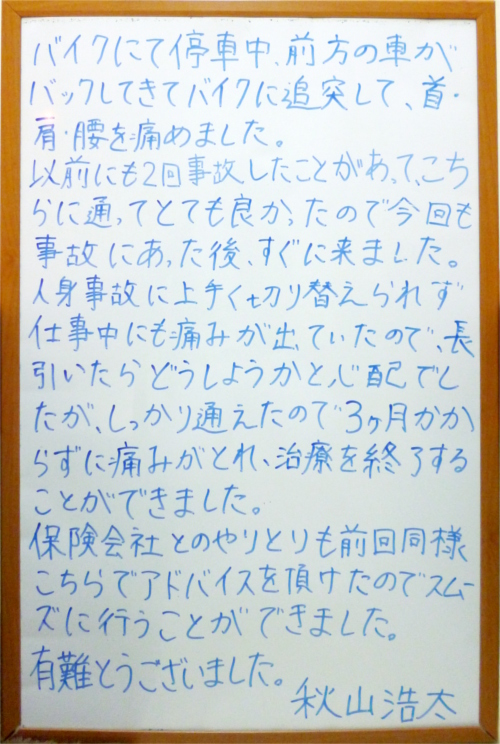 バイクにて停車中、前方の車が
バックしてきてバイクに追突して、首・
肩・腰を痛めました。
以前にも2回事故したことがあって、こち
らに通ってとても良かったので今回も
事故にあった後、すぐに来ました。
人身事故に上手く切り替えられず
仕事中にも痛みが出ていたので、長
引いたらどうしようかと心配でし
たが、しっかり通えたので3ヶ月かか
らずに痛みがとれ、治療を終了する
ことができました。
保険会社とのやりとりも前回同様
こちらでアドバイスを頂けたのでスムー
ズに行うことができました。
有難とうございました。
秋山浩太